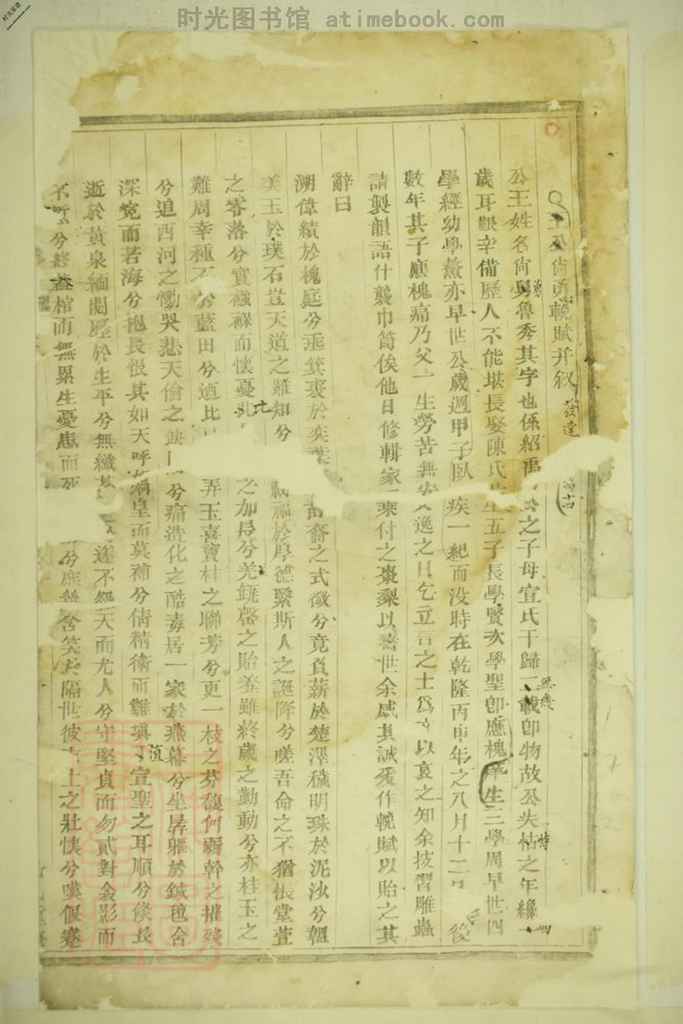 时光图书馆 atimebook.com
王公尙勇輓賦并叙
公王姓名尙勇魯秀其字也係紹禹之子母宜氏于歸二載卽物故公失怙之年纔一
歲耳艱辛備歷人不能堪長娶陳氏生五子長學賢次學聖卽應槐學生三學周早世四
學經幼學敖亦早世公歲週甲子臥疾一紀而没時在乾隆丙申年之八月十二
數年其子應槐痛乃父一生勞苦無安逸之日乞立言之士爲以哀之知余技習雕蟲
請製韻語什襲巾笥俟他日修輯家乘付之棗梨以誇世余感其誠爰作輓賦以貽之其
辭曰
溯偉績於槐庭兮垂箕裘於奕葉裔之式微兮竟負薪於楚澤穢明珠於泥沙兮韞
美玉於璞石豈天道之難知兮禍於厚德繄斯人之誕降兮嗟吾命之不猶悵堂萱
之零落兮實襁褓而懷憂之加兮羌罄之貽羞雖終歲之勤動兮亦桂玉之
難周幸種不兮藍田兮道比弄玉喜竇桂之聯芳兮更一枝之芬馥何弱幹之摧殘
兮追西河之慟哭悲天倫之兮痛造化之酷毒居一家於燕幕兮坐於鍼氊含
深冤而若海兮抱長恨其如天呼媧皇而莫補兮倩精衞而難填宣聖之耳順兮倐長
逝於黃泉緬閱歷於生平兮無纖遂不怨天而尤人兮守堅貞而勿貳對衾影而
不兮終蓋棺而無累生憂患而死兮應含笑於隔世彼士之壯懷兮嘆偃蹇